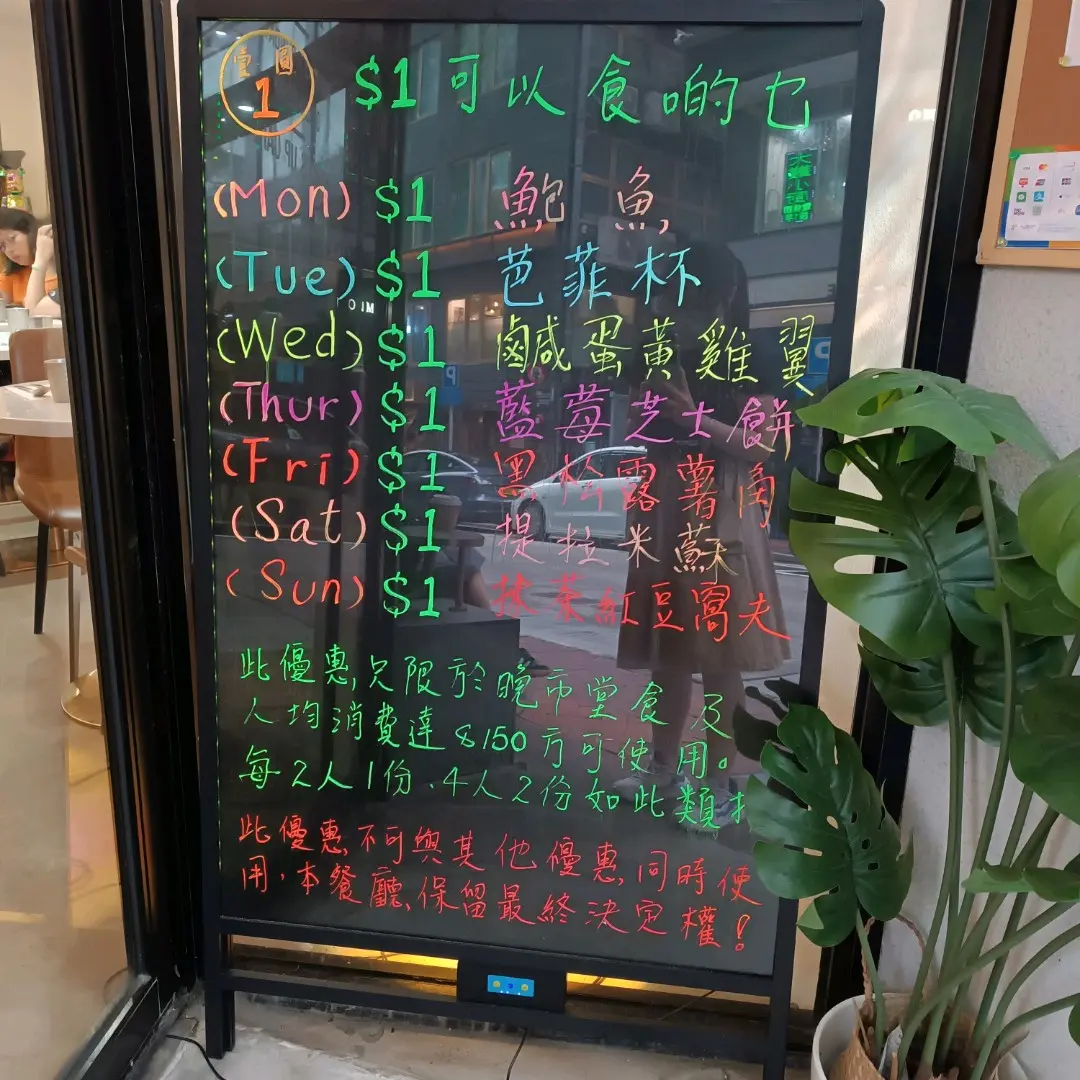 壹圓
1
$1可以食啲乜
(Mon) $1 鮑魚
(Tue) $1 芭菲杯
(Wed) $1 鹹蛋黃雞翼
(Thur) $1 藍莓芝士餅
(Fri) $1 黑松露薯角
(Sat) $1 提拉米蘇
(Sun) $1 抹茶紅豆窩夫
此優惠只限於晚市堂食及
人均消費達$150方可使用。
每2人1份、4人2份如此類推
此優惠不可與其他優惠同時使
用,本餐廳保留最終決定權!